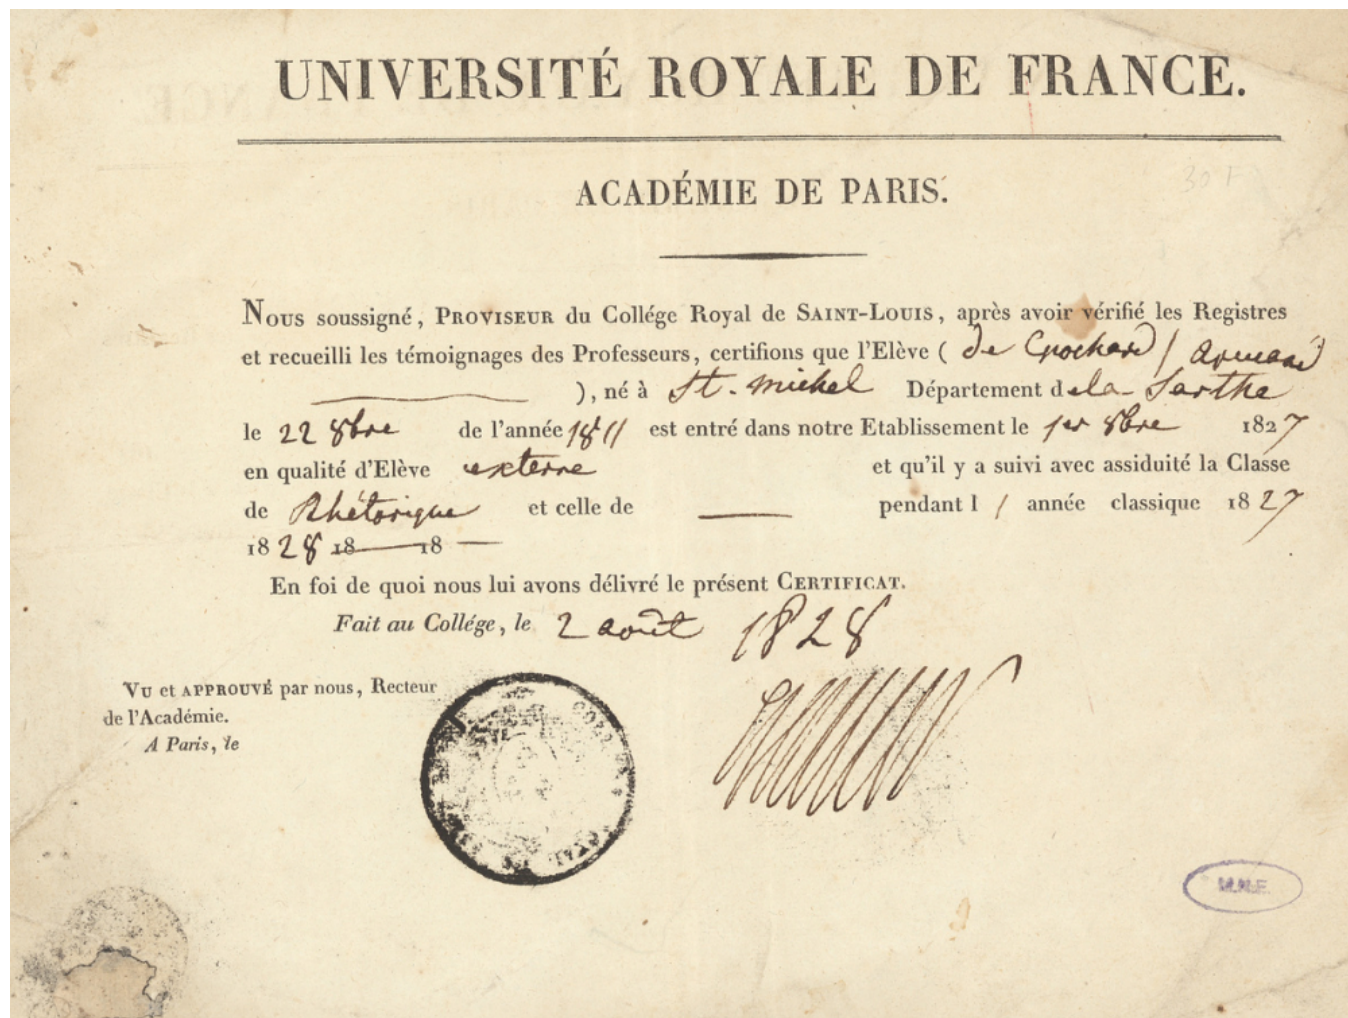 UNIVERSITÉ ROYALE DE FRANCE.
ACADÉMIE DE PARIS.
30 F
Nous soussigné, PROVISEUR du Collége Royal de SAINT-LOUIS, après avoir vérifié les Registres
et recueilli les témoignages des Professeurs, certifions que l'Elève (de Crochard / armand
), né à St. michel Département de la Sarthe
le 22 8bre de l'année 1811 est entré dans notre Etablissement le 1er 8bre 1827
en qualité d'Elève externe et qu'il y a suivi avec assiduité la Classe
de Rhétorique et celle de — pendant l / année classique 1827
1828 18 — 18 —
En foi de quoi nous lui avons délivré le présent CERTIFICAT.
Fait au Collége, le 2 août 1828
VU et APPROUVÉ par nous, Recteur
de l'Académie.
A Paris, le
M.N.E.